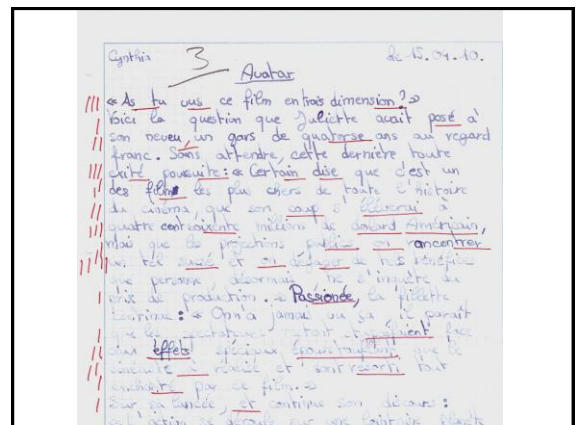 Cynthia 3 Le 15.04.10.
Avatar
« As tu vus ce film en trois dimension ? »
Voici la question que Juliette avait posé à
son neveu un gars de quatorse ans au regard
franc. Sans attendre, cette dernière toute
exité poursuite : « Certain dise que c'est un
des films les plus chers de toute l'histoire
du cinéma, que son coup s'élèverai à
quatre cent soixante millions de Américain,
mais que les projections on rancentrer
un tel succé et on dégager de tels bénéfices
que persone, désormais ne s'inquète du
prix de production. » Passionée, la fillette
continue : « On n'a jamais vu ça il parait
que les spectateurs face
aux effets spéciaux que le
cinéaste à réalisé et sont resorti tout
enchanté par ce film. »
Sur sa lancée, et continue son discours :
l'action se déroule sur une lointaine planète